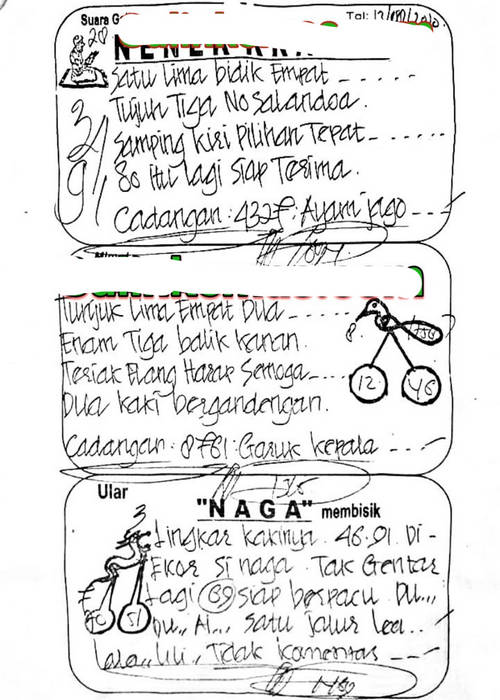 Suara G
Tgl: 12/08/2020
28
Satu Lima bidik Empat - - - - -
Tujuh Tiga No Salandoa.
Samping kiri Pilihan Tepat - - - - - -
80 itu lagi siap Terima.
Cadangan: 432F: Ayam jago - - -
Tunjuk Lima Empat Dua - - - - -
Enam Tiga balik kanan.
Teriak Elang Harap Semoga - - - -
Dua kaki bergandengan.
8
12
46
Cadangan: 8761: Garuk kepala - - -
1315
Ular
"NAGA" membisik
3
Lingkar kakinya. 46.01. Di -
Ekor si naga. Tak Gentar
Lagi 69 siap berpacu. Du..,
Du.., Ai.., Satu jalur Lea..
51
Lala.., Lili., Tidak komentar - - -